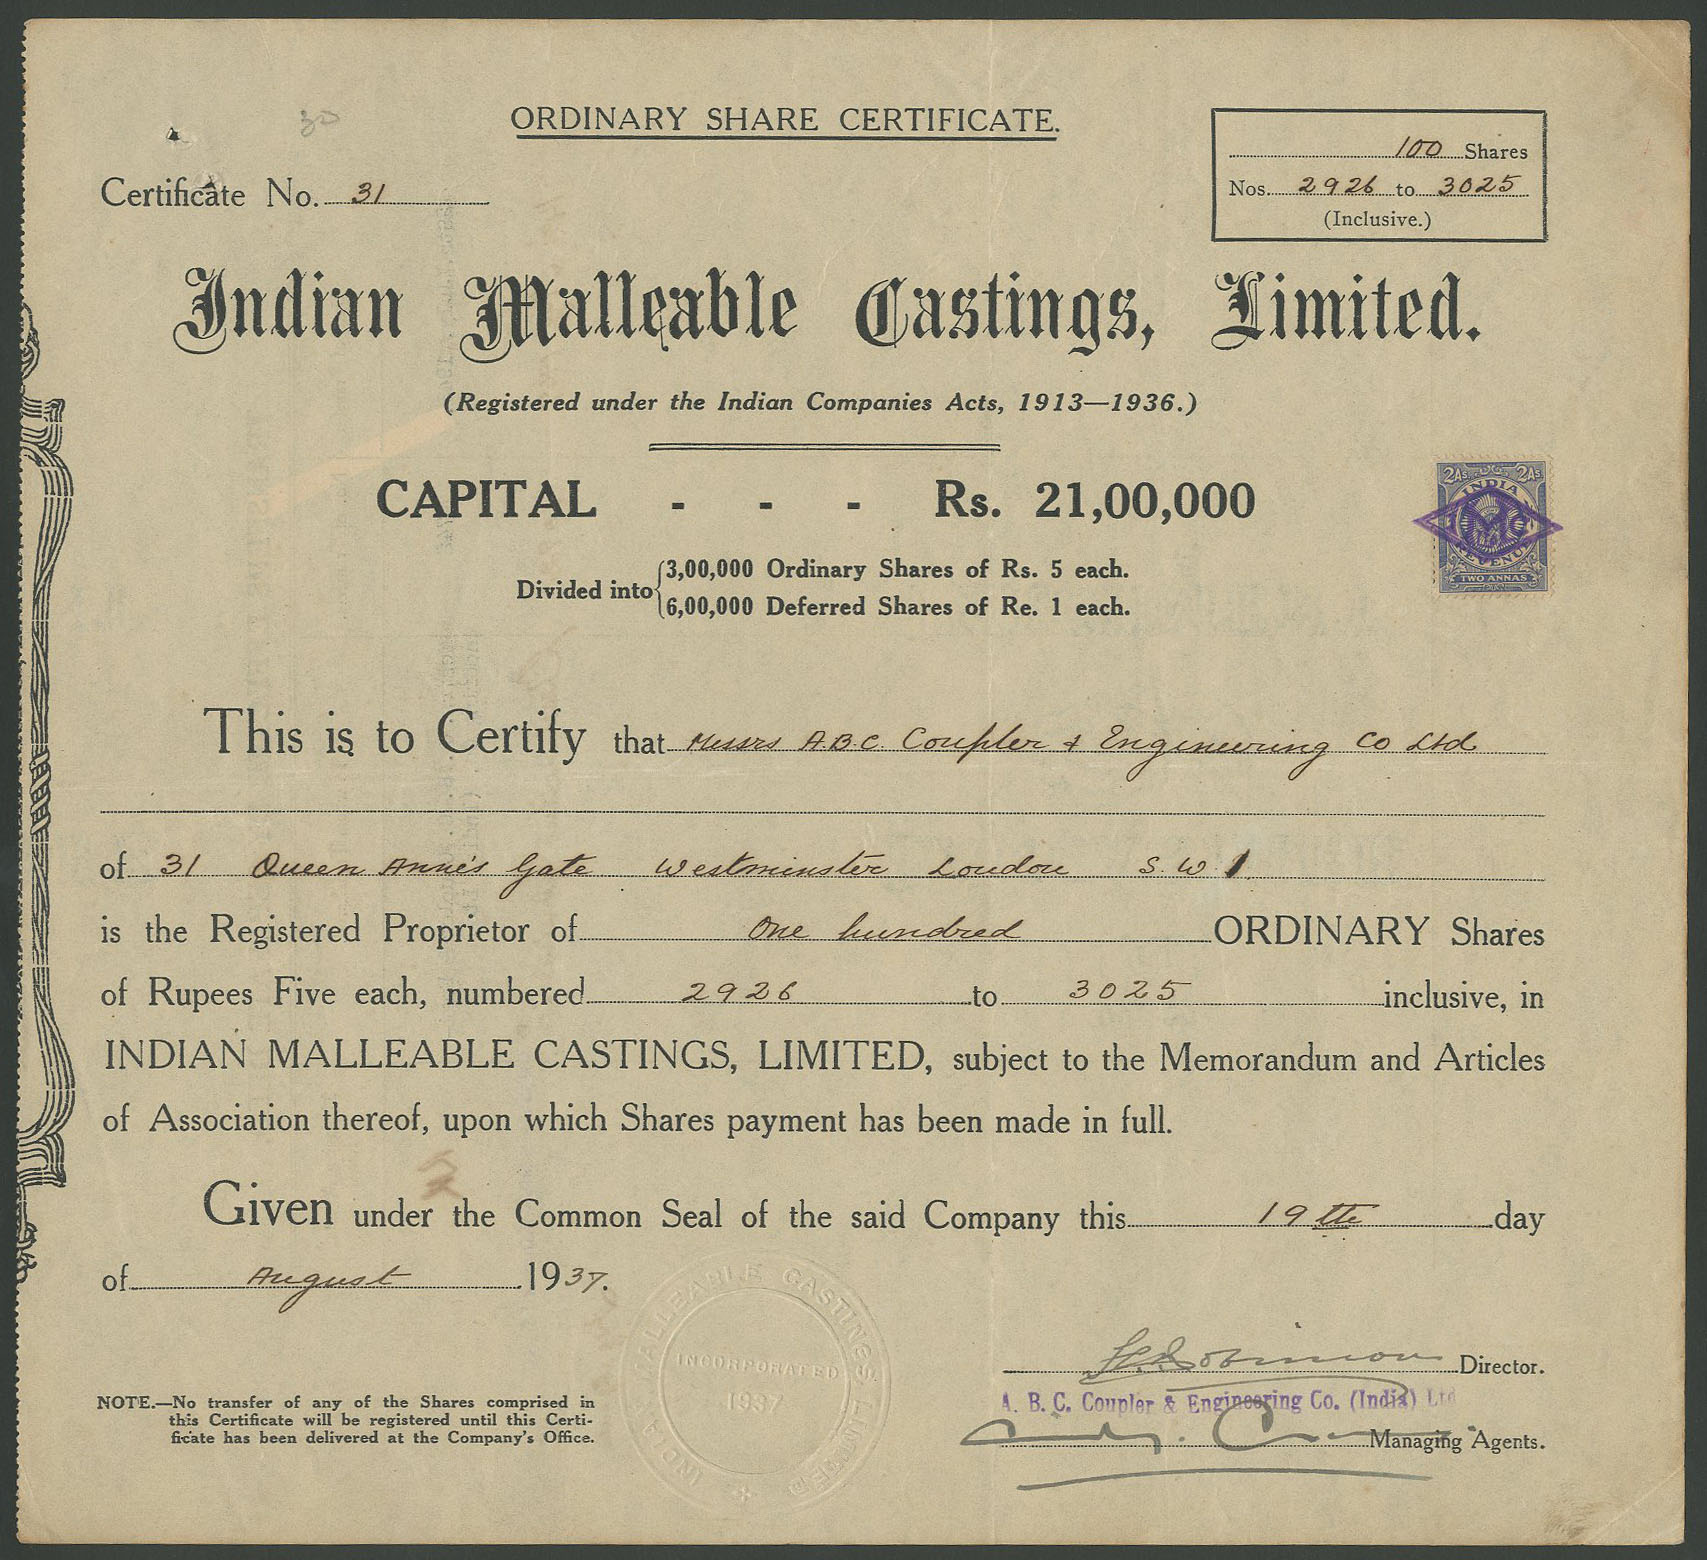 30
ORDINARY SHARE CERTIFICATE.
100 Shares
Certificate No. 31
Nos. 2926 to 3025
(Inclusive.)
Indian Malleable Castings, Limited.
(Registered under the Indian Companies Acts, 1913—1936.)
CAPITAL - - - Rs. 21,00,000
2As. 2As.
INDIA
REVENUE
TWO ANNAS
Divided into { 3,00,000 Ordinary Shares of Rs. 5 each.
6,00,000 Deferred Shares of Re. 1 each.
This is to Certify that Messrs A.B.C. Coupler & Engineering Co Ltd
of 31 Queen Anne's Gate Westminster London S.W.1.
is the Registered Proprietor of One hundred ORDINARY Shares
of Rupees Five each, numbered 2926 to 3025 inclusive, in
INDIAN MALLEABLE CASTINGS, LIMITED, subject to the Memorandum and Articles
of Association thereof, upon which Shares payment has been made in full.
Given under the Common Seal of the said Company this 19th day
of August 1937.
INDIAN MALLEABLE CASTINGS LIMITED
INCORPORATED
1937
Director.
A. B. C. Coupler & Engineering Co. (India) Ltd
Managing Agents.
NOTE.—No transfer of any of the Shares comprised in
this Certificate will be registered until this Certi-
ficate has been delivered at the Company's Office.